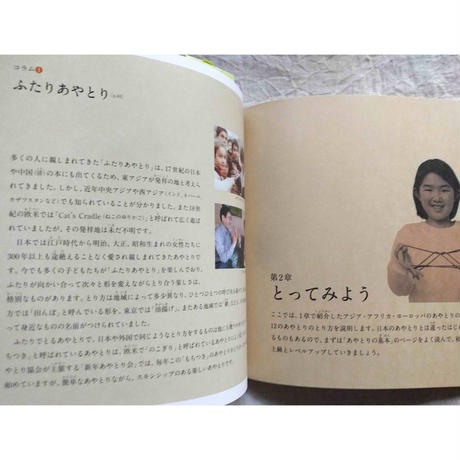 コラム1
ふたりあやとり
多くの人に親しまれてきた「ふたりあやとり」は、17世紀の日本
や中国(清)の本にも出てくるため、東アジアが発祥の地と考えら
れてきました。しかし、近年中央アジアや西アジア(インド、ネパール、
カザフスタンなど)でも知られていることが分かりました。また18世
紀の欧米では「Cat's Cradle(ねこのゆりかご)」と呼ばれて広く遊ば
れていましたが、その発祥地は未だ不明です。
日本では江戸時代から明治、大正、昭和生まれの女性たちに
300年以上も途絶えることなく愛され親しまれてきたあやとりで
す。今でも多くの子どもたちが「ふたりあやとり」を楽しんでおり、ふ
たりが向かい合って次々と形を変えながらとり合う楽しさは、
格別なものがあります。とり方は地域によって多少異なり、ひとつひとつの呼び
方では「田んぼ」と呼んでいる形を、東京では
って身近なものの名前がつけられていました。
ふたりでとるあやとりで、日本や外国で同じようなとり方をするものは他にも
ちつき」と呼ばれているあやとりは、欧米で「のこぎり」と呼ばれているあやとり
やとり協会が主催する「新年あやとり会」では、毎年この「もちつき」のあやとりで
始めていますが、簡単なあやとりながら、スキンシップのある楽しいあやとりです。
第2章
とってみよう
ここでは、1章で紹介したアジア・アフリカ・ヨーロッパのあやとりの
12のあやとりのとり方を説明します。日本のあやとりとは違ったはじ
るものもあるので、まずは「あやとりの基本」のページをよく読んで、初
上級とレベルアップしていきましょう。